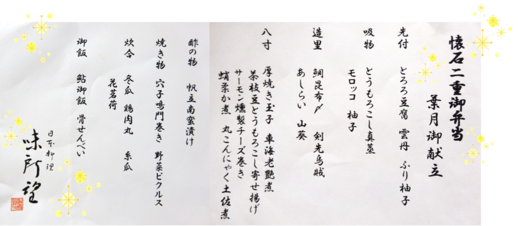 懐石二重御弁当
葉月御献立
先付　とろろ豆腐　雲丹　ふり柚子
吸物　とうもろこし真薯
モロッコ　柚子
造里　鯛昆布〆　剣先烏賊
あしらい　山葵
八寸　厚焼き玉子　車海老艶煮
茶枝豆とうもろこし寄せ揚げ
サーモン燻製チーズ巻き
蛸柔か煮　丸こんにゃく土佐煮
酢の物　帆立南蛮漬け
焼き物　穴子鳴門巻き　野菜ピクルス
炊合　冬瓜　鶏肉丸　糸瓜
花茗荷
御飯　鮎御飯　骨せんべい
日本料理
味所望